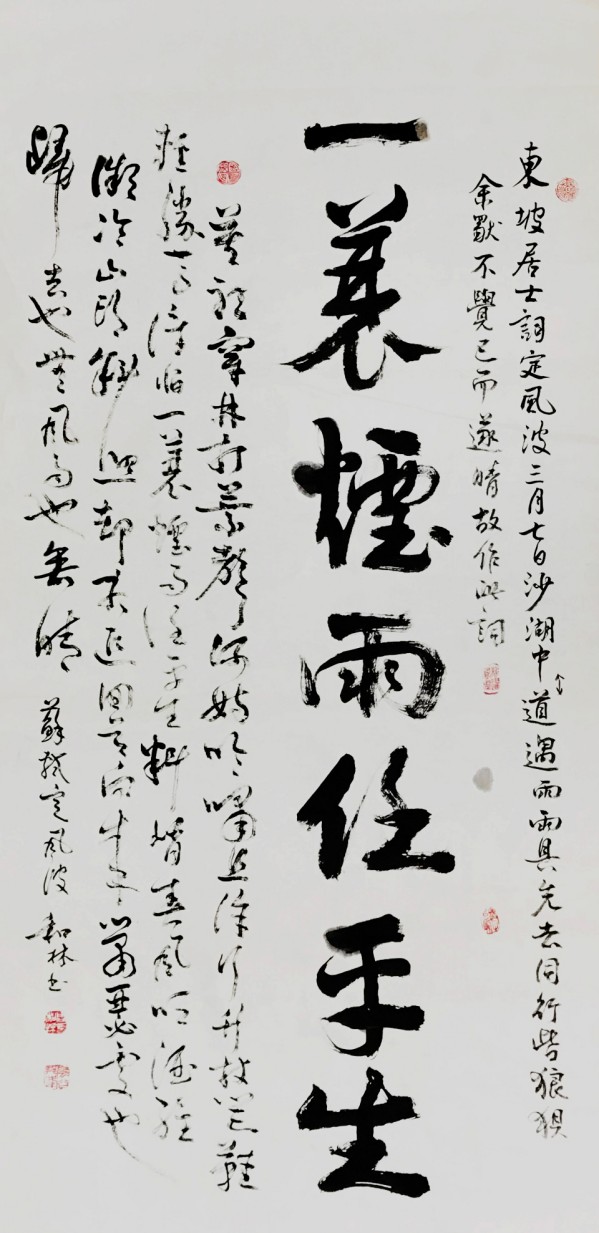 東坡居士詞定風波三月七日沙湖中道遇雨雨具先去同行皆狼狽
余獸不覺已而遂晴故作此詞
一蓑煙雨任平生
莫聽穿林打葉聲何妨吟嘯且徐行竹杖芒鞋
輕勝馬誰怕一蓑煙雨任平生料峭春風吹酒醒
微冷山頭斜照卻相迎回首向來蕭瑟處也
歸去也無風雨也無晴 蘇軾定風波 林書